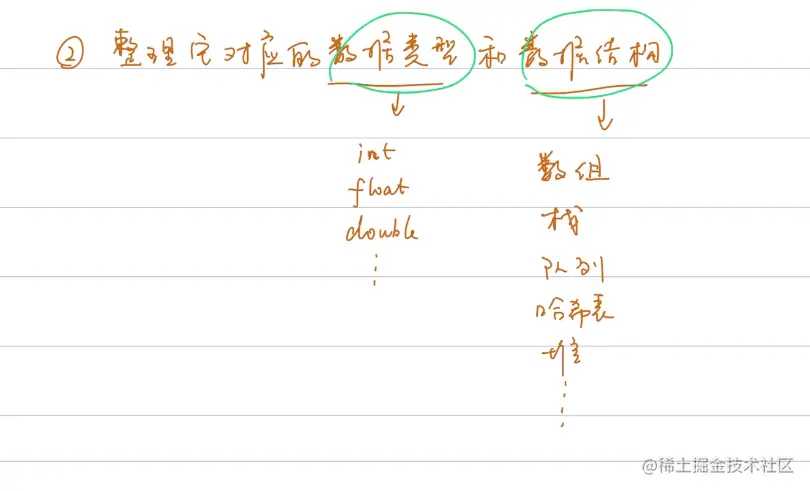 ② 整理它对应的数据类型和数据结构
int
float
double
数组
栈
队列
哈希表
堆
@稀土掘金技术社区